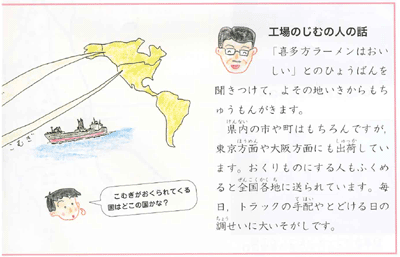 工場のじむの人の話
「喜多方ラーメンはおい
しい」とのひょうばんを
聞きつけて、よその地いきからもち
ゅうもんがきます。
けんない
県内の市や町はもちろんですが、
ほうめん しゅっか
東京方面や大阪方面にも出荷してい
ます。おくりものにする人もふくめ
ぜんこくかくち
ると全国各地に送られています。毎
てはい
日，トラックの手配やとどける日の
ちょう
調せいに大いそがしです。
こむぎ
こむぎがおくられてくる
国はどこの国かな？